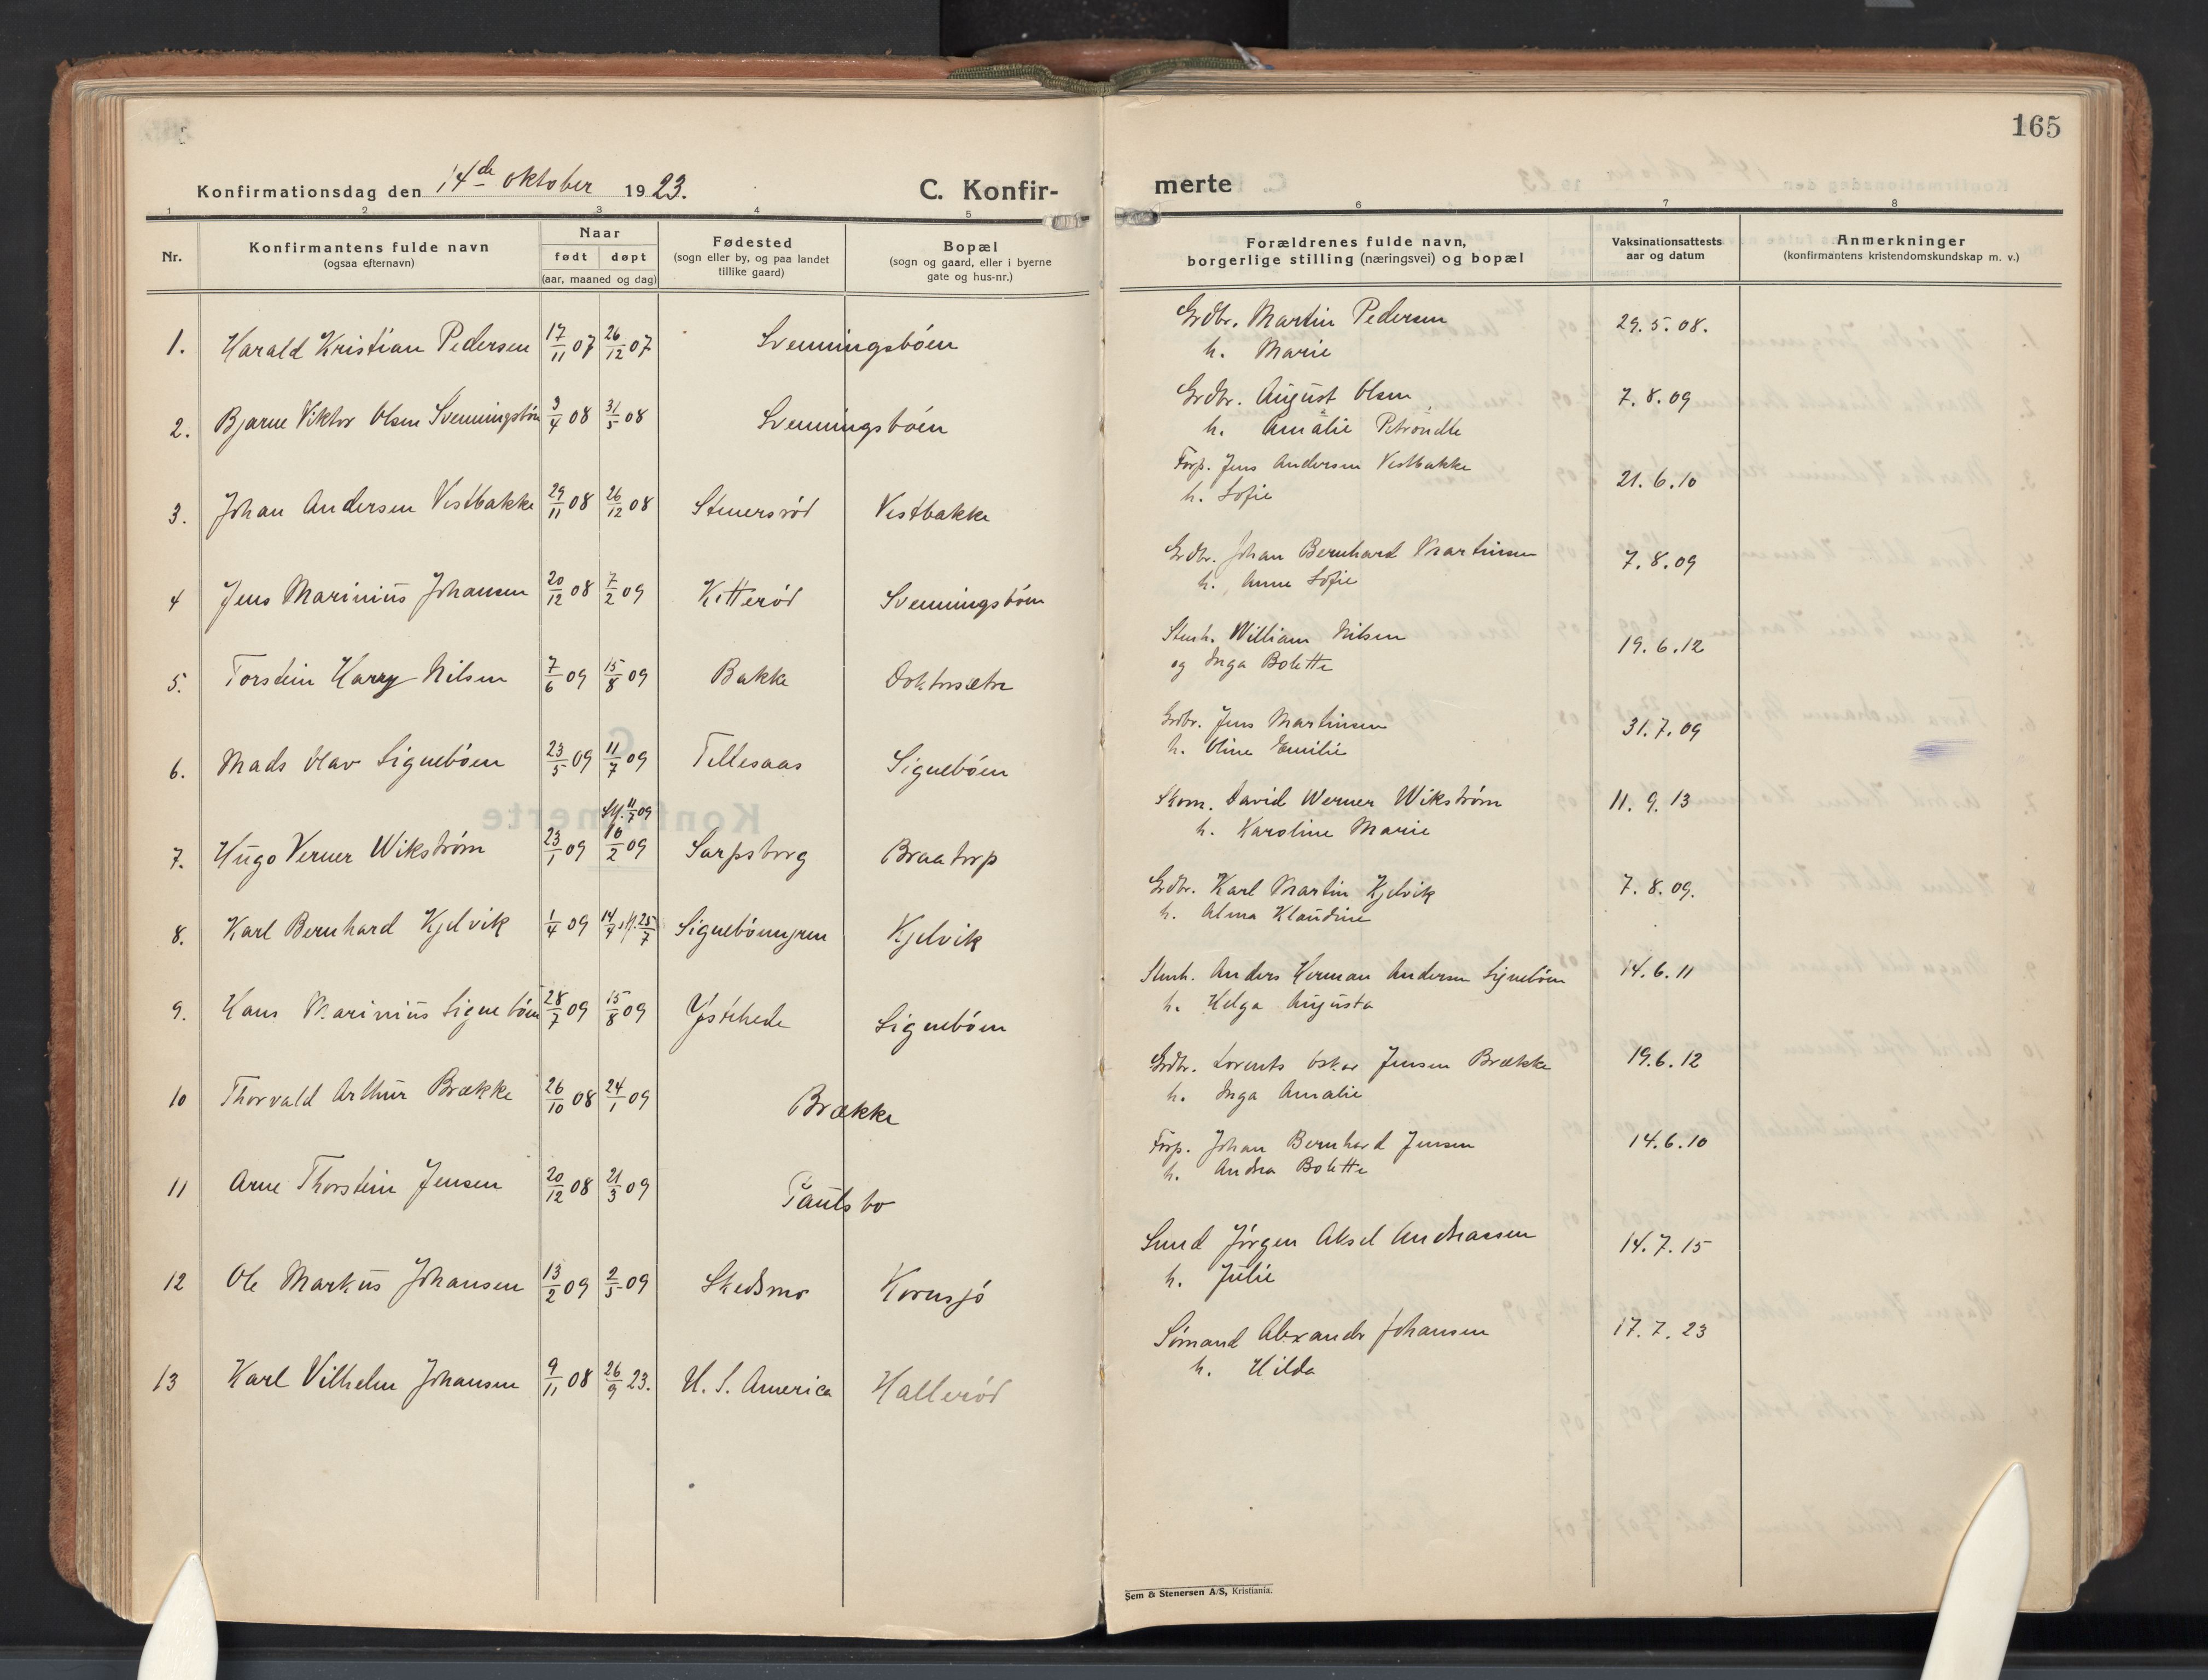 165
Konfirmationsdag den 14de oktober 1923. C. Konfir- merte
1 2 3 4 5 6 7 8
Nr. Konfirmantens fulde navn (ogsaa efternavn) Naar født døpt (aar, maaned og dag) Fødested (sogn eller by, og paa landet tillike gaard) Bopæl (sogn og gaard, eller i byerne gate og hus-nr.) Forældrenes fulde navn, borgerlige stilling (næringsvei) og bopæl Vaksinationsattests aar og datum Anmerkninger (konfirmantens kristendomskundskap m. v.)
1. Harald Kristian Pedersen 17/11 07 26/12 07 Svenningsbøen Grdbr. Martin Pedersen 29.5.08.
h. Marie
2. Bjarne Viktor Olsen Svenningsbøn 3/4 08 31/5 08 Svenningsbøen Grdbr. August Olsen 7.8.09
h. Amalie Petronelle
3. Johan Andersen Vestbakke 29/11 08 26/12 08 Stenersrød Vestbakke Forp. Jens Andersen Vestbakke 21.6.10
h. Sofie
4 Jens Marinius Johansen 20/12 08 7/2 09 Kitterød Svenningsbøen Grdbr. Johan Bernhard Martinsen 7.8.09
h. Anne Sofie
5. Torstein Harry Nilsen 7/6 09 15/8 09 Bakke Doktorsætre Stenh. William Nilsen 19.6.12
og Inga Bolette
6. Mads Olav Signebøen 23/5 09 11/7 09 Tillesaas Signebøen Grdbr. Jens Martinsen 31.7.09
h. Oline Emilie
7. Hugo Verner Wikstrøm 23/1 09 st. 11/7 09 10/2 09 Sarpsborg Braatorp Skom. David Werner Wikstrøm 11.9.13
h. Karoline Marie
8. Karl Bernhard Kjelvik 1/4 09 14/4 st. 25/7 Signebøenyren Kjelvik Grdbr. Karl Martin Kjelvik 7.8.09.
h. Alma Klaudine
9. Hans Marinius Signebøen 28/7 09 15/8 09 Ystehede Signebøen Stenh. Anders Herman Andersen Signebøen 14.6.11
h. Helga Augusta
10 Thorvald Arthur Brække 26/10 08 24/1 09 Brække Grdbr. Lorents Oskar Jensen Brække 19.6.12
h. Inga Amalie
11 Arne Thorstein Jensen 20/12 08 21/3 09 Paulsbo Forp. Johan Bernhard Jensen 14.6.10
h. Andrea Bolette
12 Ole Markus Johansen 13/2 09 2/5 09 Skedsmo Kornsjø Smed Jørgen Aksel Andreassen 14.7.15
h. Julie
13 Karl Vilhelm Johansen 9/11 08 26/9 23. U. S. America Hallerød Sømand Alexander Johansen 17.7.23
h. Hilda
Sem & Stenersen A/S, Kristiania.